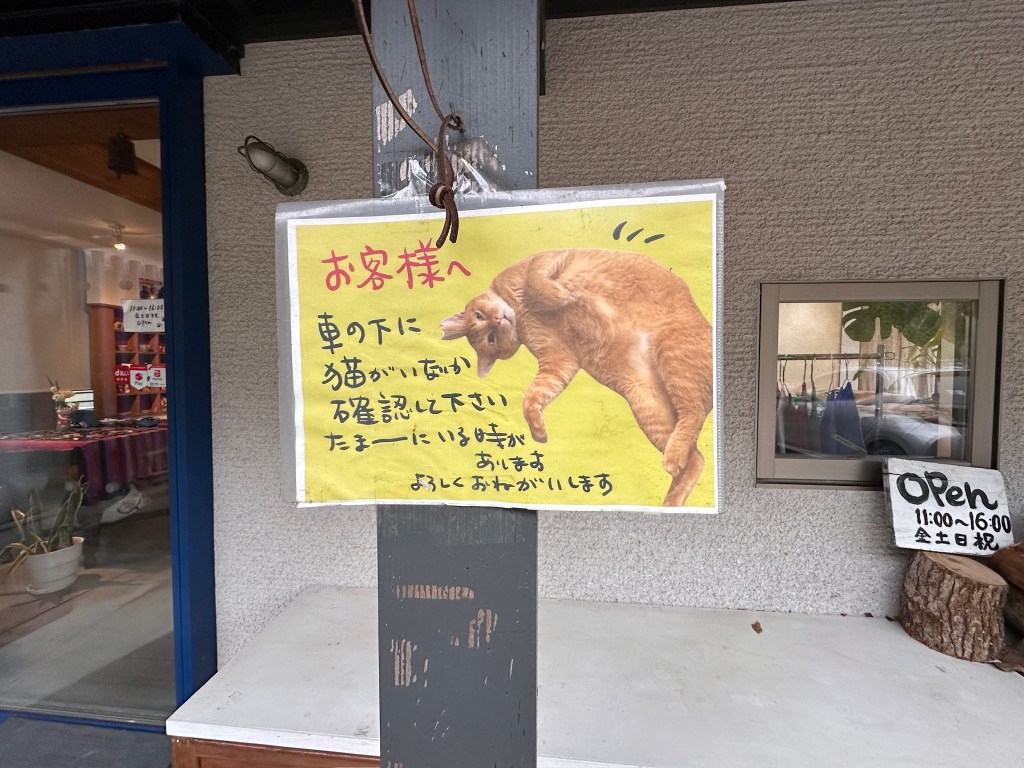 お客様へ
車の下に
猫がいないか
確認して下さい
たまーにいる時が
あります
よろしくおねがいします
OPen
11:00~16:00
金土日祝
11:00~16:00
金土日祝
OPen
Pay